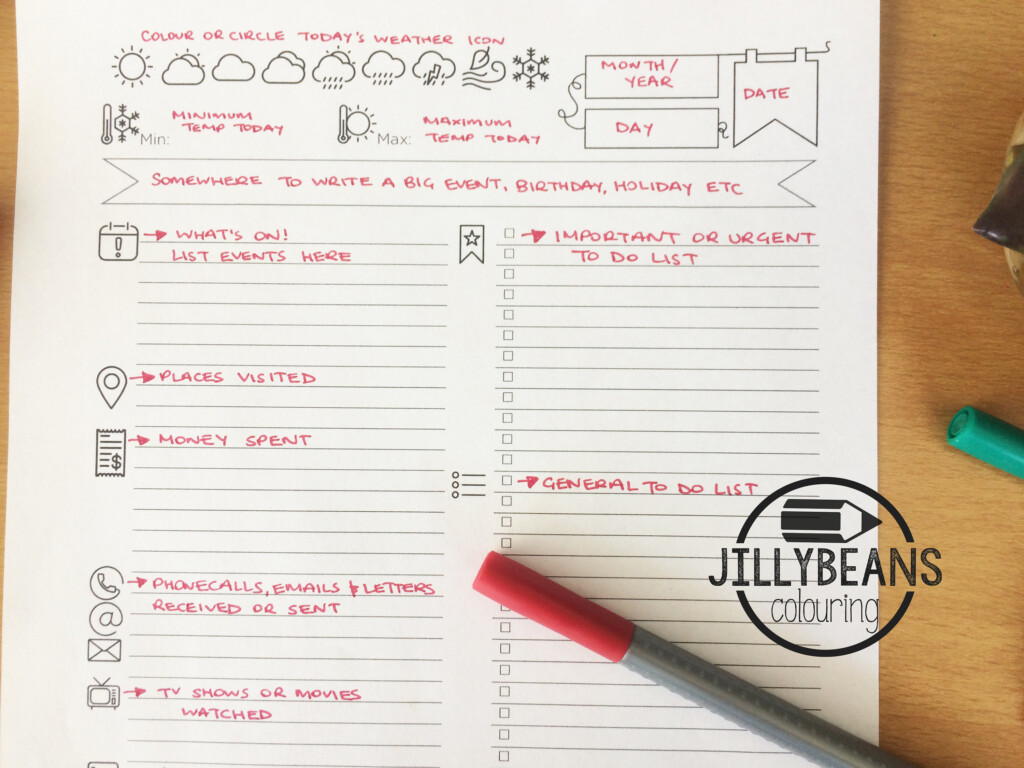 COLOUR OR CIRCLE TODAY'S WEATHER ICON
MONTH/
YEAR
DATE
MINIMUM
TEMP TODAY
Min:
MAXIMUM
TEMP TODAY
Max:
DAY
SOMEWHERE TO WRITE A BIG EVENT, BIRTHDAY, HOLIDAY ETC
WHAT'S ON!
LIST EVENTS HERE
PLACES VISITED
MONEY SPENT
PHONECALLS, EMAILS & LETTERS
RECEIVED OR SENT
TV SHOWS OR MOVIES
WATCHED
IMPORTANT OR URGENT
TO DO LIST
GENERAL TO DO LIST
JILLYBEANS
colouring